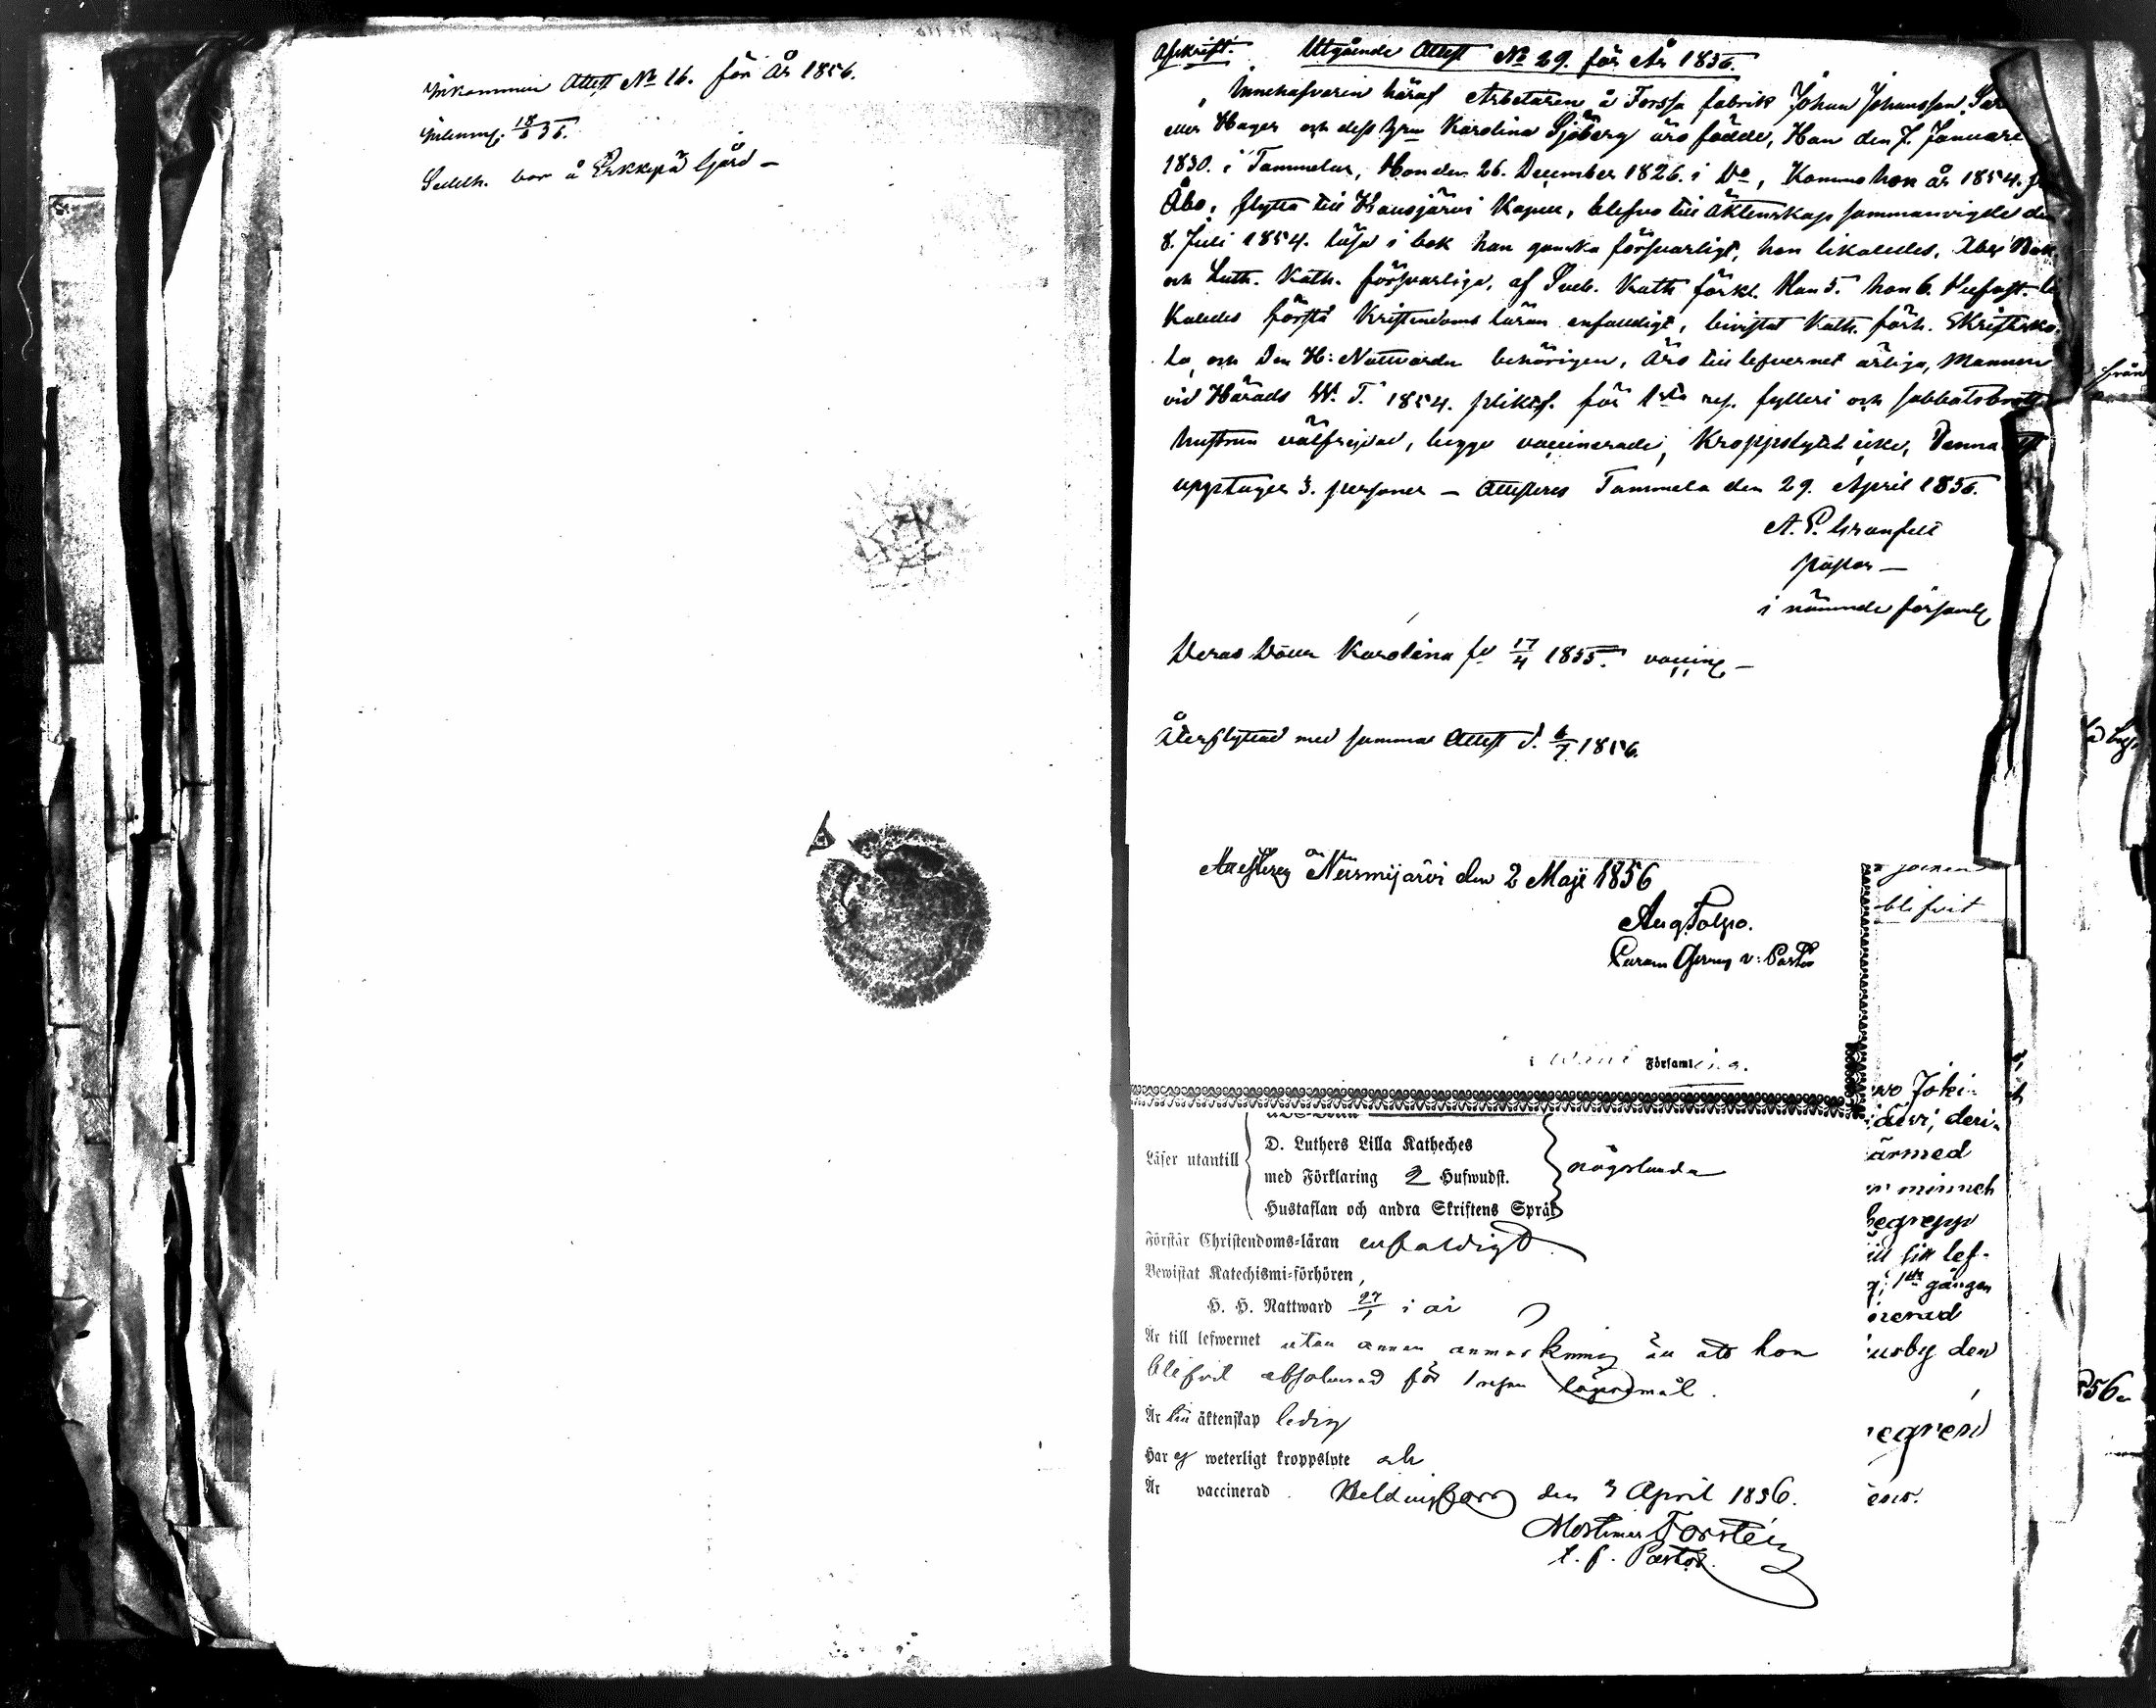 Inkommen Attest No 16. för År 1856.
Inlemn. 18/5 56.
Sedelh. bor å Erkkylä Gård –
Afskrift. Utgående Attest No 29. för År 1856.
Innehafvaren häraf Arbetaren å Forssa fabrik Johan Johansson
eller Hager och dess hru Karolina Sjöberg äro födde, Han den 7. Januari
1830. i Tammela, Hon den 26. December 1826. i Do, Kommo hon år 1854.
Åbo, flytta till Hausjärvi Kapell, blefvo till äktenskap sammanvigde den
8. Juli 1854. läsa i bok han ganska försvarligt, hon likaledes, Abc Bok
och Luth. Kath. försvarliga, af Sveb. Kath förkl. Han 5. hon 6. Hufvst. li
kaledes förstå Kristendoms läran enfaldigt, bivistat Kath. förh. Skriftsko-
la och Den H: Nattvarden behörigen, äro till lefvernet ärliga, Mannen
vid Härads W. T. 1854. pliktf. för 1sta res. fylleri och sabbatsbrott
hustrun välfrejdad, begge vaccinerade, Kroppslytet icke, Denna
upptager 3. personer – Attesteras Tammela den 29. April 1856.
A. P. Granfelt
i nämnde församl
Deras Dotter Karolina fd 17/4 1855. vaccin –
Återflyttad med samma Attest d. 6/7 1856.
Attesteras Nurmijärvi den 2 Maji 1856
Aug Palpo.
v: Pastor
Församl
blifvit
Läser utantill
D. Luthers Lilla Katheches
med Förklaring 2 Hufwudst.
Hustaflan och andra Skriftens Språk
någorlunda
Förstår Christendoms-läran enfaldigt
Bewistat Katechismi-förhören,
H. H. Nattward 27/1 i år
Är till lefwernet utan annan anmärkning än att hon
blifvit absolverad för 1 resan lägersmål.
Är till äktenskap ledig
Har ej weterligt kroppslyte och
Är vaccinerad. Heldingfors den 3 April 1856.
Mortimer Forstén
t. f. Pastor.
Joki-
deri-
ärmed
begrepp
till sitt lef-
1sta gången
nerad
usby den
56.